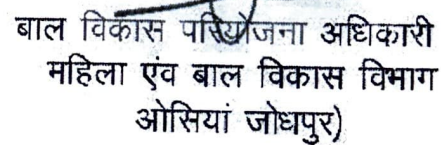 बाल विकास परियोजना अधिकारी
महिला एंव बाल विकास विभाग
ओसियां जोधपुर)